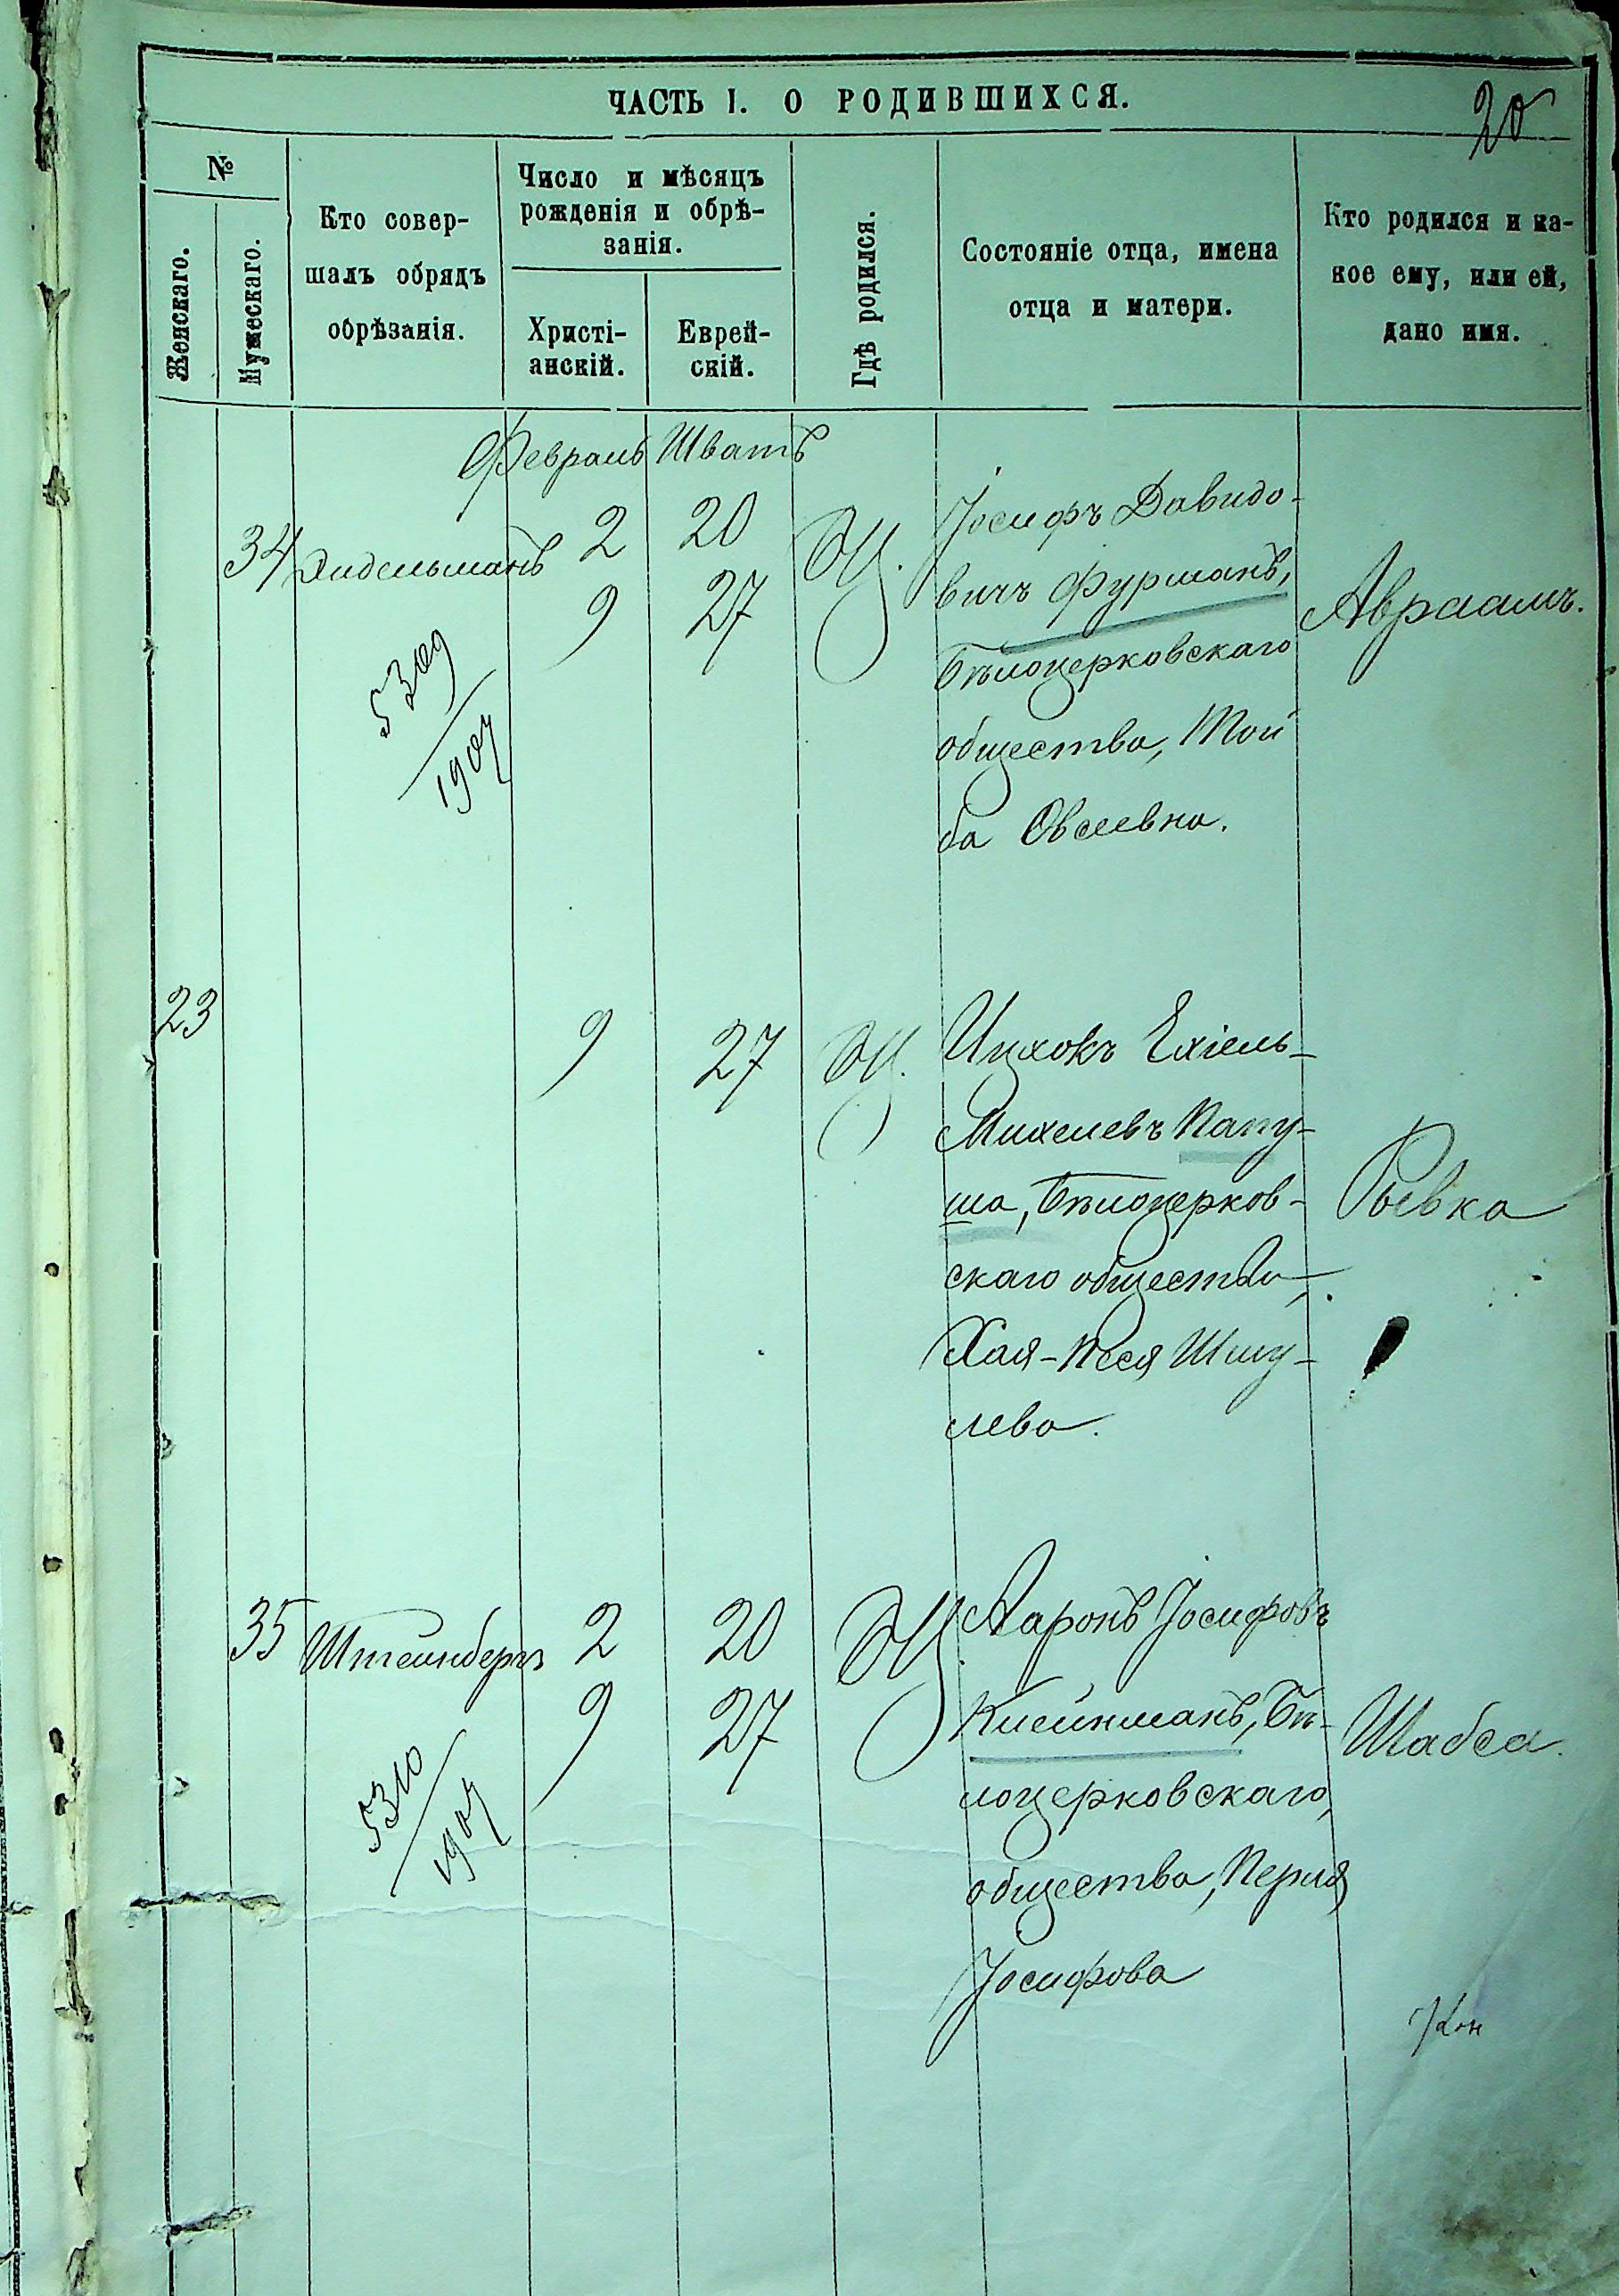 ЧАСТЬ I. О РОДИВШИХСЯ.
20
№
Женскаго.
Мужескаго.
Кто совер-
шалъ обрядъ
обрѣзанія.
Число и мѣсяцъ
рожденія и обрѣ-
занія.
Христі-
анскій.
Еврей-
скій.
Гдѣ родился.
Состояніе отца, имена
отца и матери.
Кто родился и ка-
кое ему, или ей,
дано имя.
Февраль Шватъ
34 Эйдельманъ 2 20
9 27
5309
1907
Іосифъ Давидо-
вичъ Фурманъ,
Бѣлоцерковскаго
общества, Той
ба Овсеевна.
Авраамъ.
23 9 27
Ицхокъ Ехіель-
Михелевъ Папу-
ша, Бѣлоцерков-
скаго общества,
Хая-Песя Шму-
лева.
Рывка
35 Штейнбергъ 2 20
9 27
5310
1907
Ааронъ Іосифовъ
Клейнманъ, Бѣ-
лоцерковскаго
общества, Перля
Іосифова
Шабса.